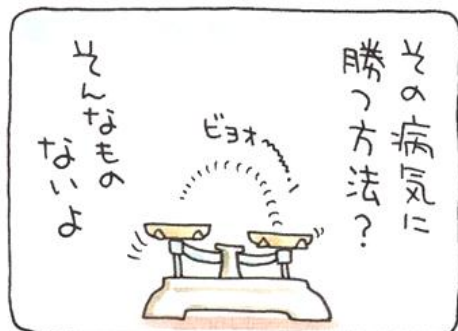 その病気に
勝つ方法?
ビヨオ〜〜!
そんなもの
ないよ